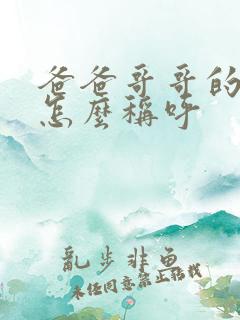 爸爸哥哥的
怎麼稱呼
亂步非魚
未經同意禁止轉載